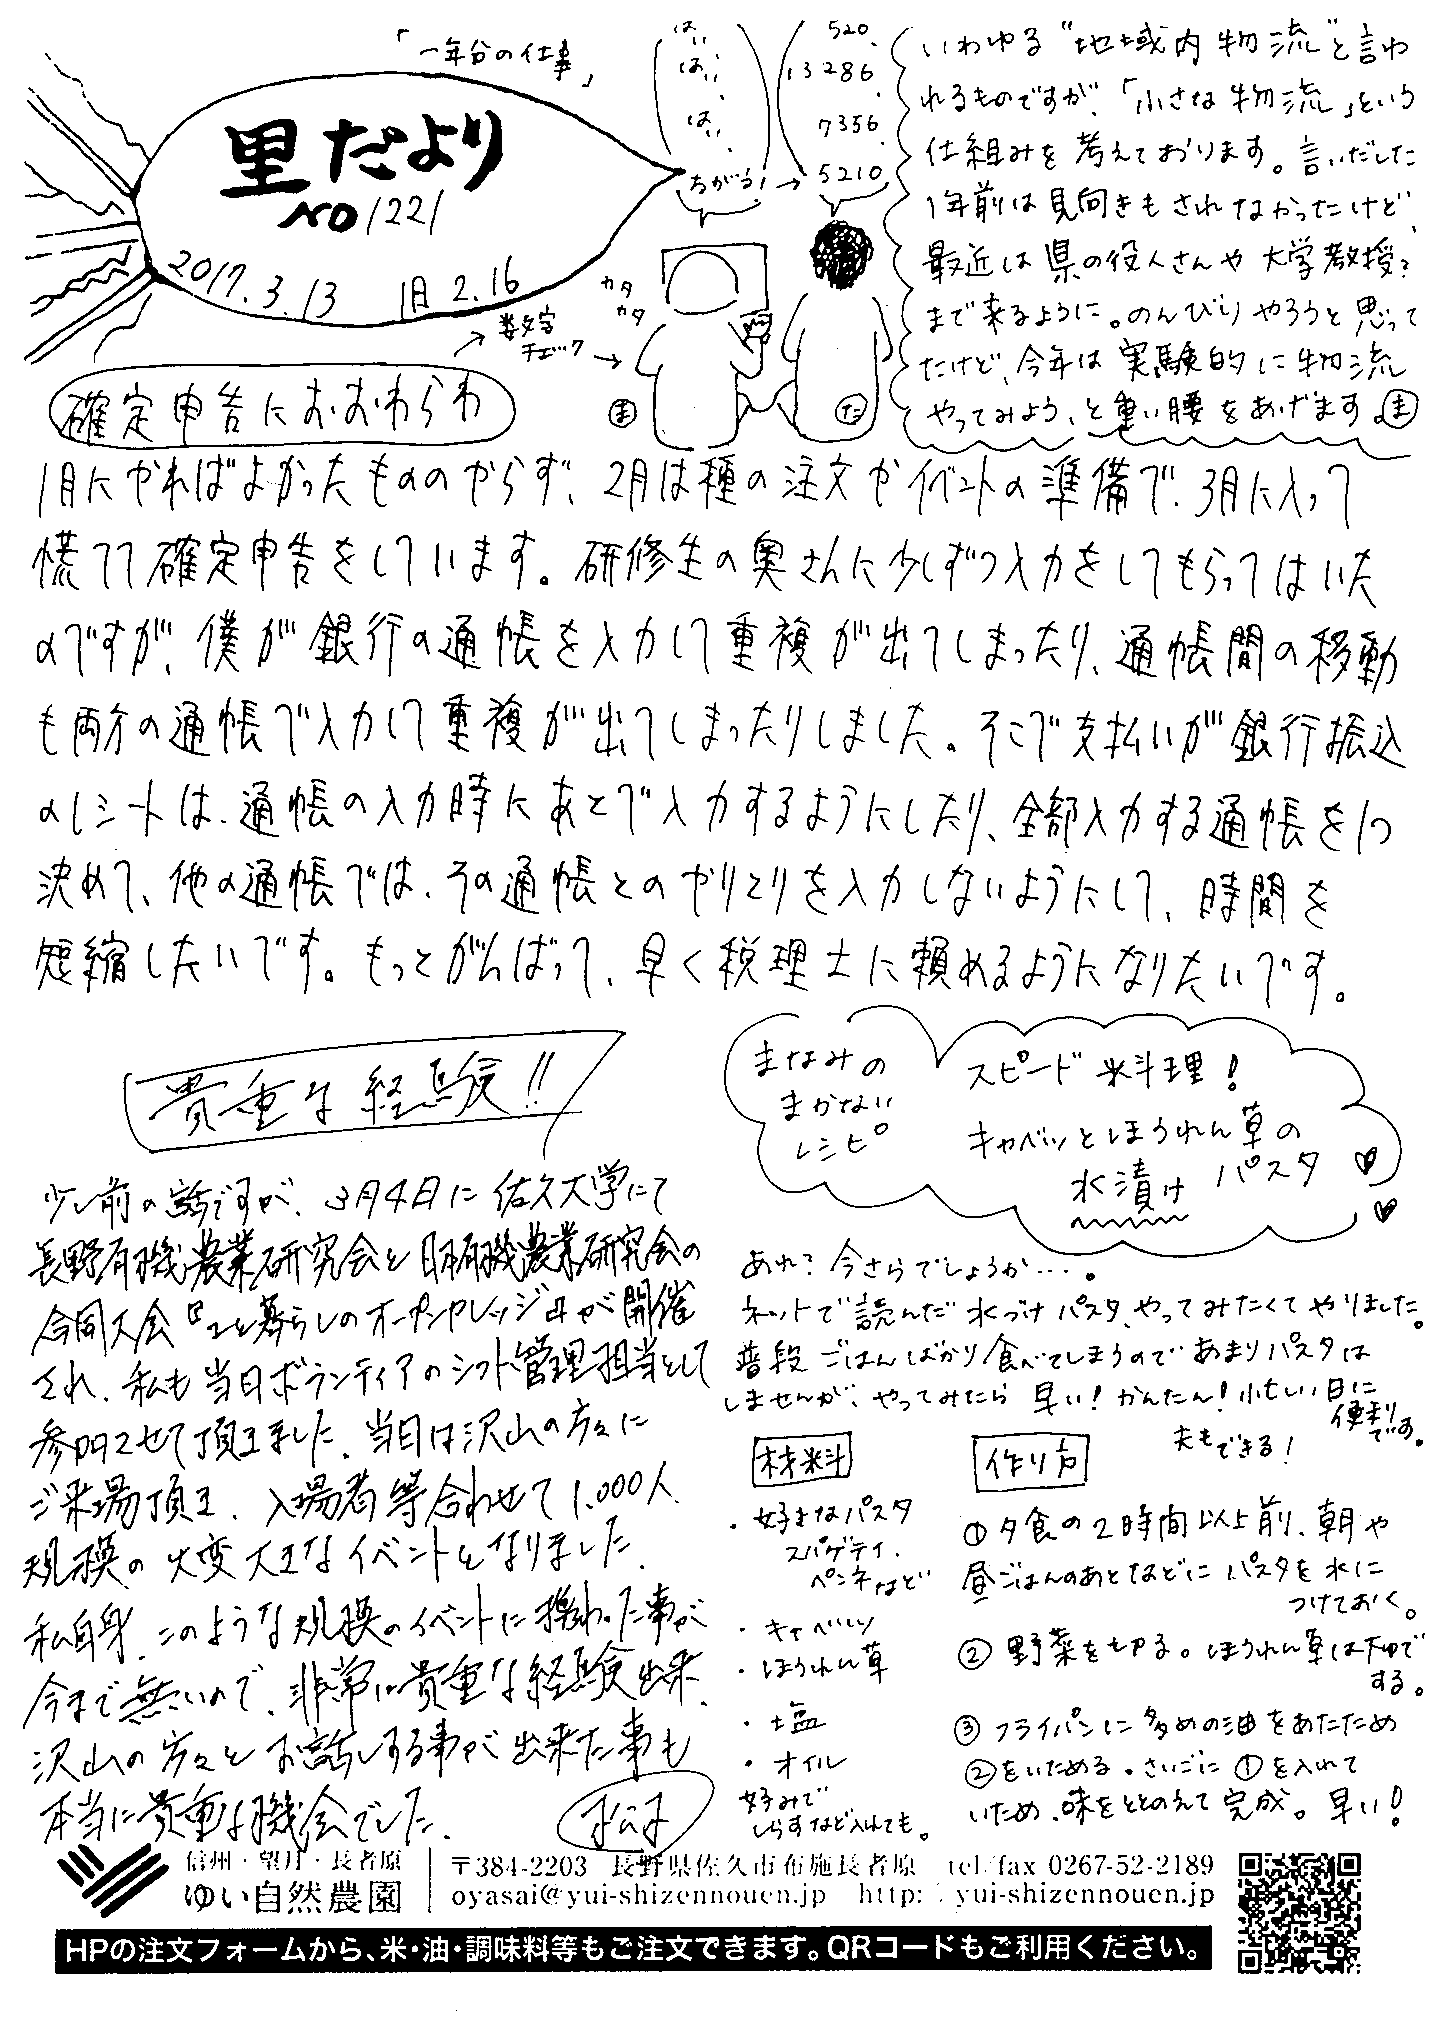 「一年分の仕事」
里だより
NO1221
2017.3.13 旧2.16
数字
チェック
はい、
はい、
はい、
ちがう!
520、
13286、
7356、
5210
カタ
カタ
ま
た
いわゆる“地域内物流”と言わ
れるものですが、「小さな物流」という
仕組みを考えております。言いだした
1年前は見向きもされなかったけど、
最近は県の役人さんや大学教授?
まで来るように。のんびりやろうと思って
たけど、今年は実験的に物流
やってみよう、と重い腰をあげます。ま
確定申告におおわらわ
1月にやればよかったもののやらず、2月は種の注文やイベントの準備で、3月に入って
慌てて確定申告をしています。研修生の奥さんに少しずつ入力をしてもらってはいた
のですが、僕が銀行の通帳を入力して重複が出てしまったり、通帳間の移動
も両方の通帳で入力して重複が出てしまったりしました。そこで支払いが銀行振込
のレシートは、通帳の入力時にあとで入力するようにしたり、全部入力する通帳を1つ
決めて、他の通帳では、その通帳とのやりとりを入力しないようにして、時間を
短縮したいです。もっとがんばって、早く税理士に頼めるようになりたいです。
貴重な経験!!
少し前の話ですが、3月4日に佐久大学にて
長野有機農業研究会と日本有機農業研究会の
合同大会『土と暮らしのオープンカレッジ』が開催
され、私も当日ボランティアのシフト管理担当として
参加させて頂きました。当日は沢山の方々に
ご来場頂き、入場者等合わせて1,000人
規模の大変大きなイベントとなりました。
私自身、このような規模のイベントに携わった事が
今まで無いので、非常に貴重な経験出来、
沢山の方々とお話しする事が出来た事も
本当に貴重な機会でした。
まなみの
まかない
レシピ
スピード料理!
キャベツとほうれん草の
水漬けパスタ
あれ?今さらでしょうか…。
ネットで読んだ水づけパスタ、やってみたくてやりました。
普段ごはんばかり食べてしまうのであまりパスタは
しませんが、やってみたら早い!かんたん!忙しい日に
便利です。
夫もできる!
材料
・好きなパスタ
スパゲティ、
ペンネなど
・キャベツ
・ほうれん草
・塩
・オイル
好みで
しらすなど入れても。
作り方
①夕食の2時間以上前、朝や
昼ごはんのあとなどにパスタを水に
つけておく。
②野菜を切る。ほうれん草は下ゆで
する。
③フライパンに多めの油をあたため
②をいためる。さいごに①を入れて
いため、味をととのえて完成。早い!
信州・望月・長者原
ゆい自然農園
〒384-2203 長野県佐久市布施長者原 tel/fax 0267-52-2189
oyasai@yui-shizennouen.jp http: yui-shizennouen.jp
HPの注文フォームから、米・油・調味料等もご注文できます。QRコードもご利用ください。